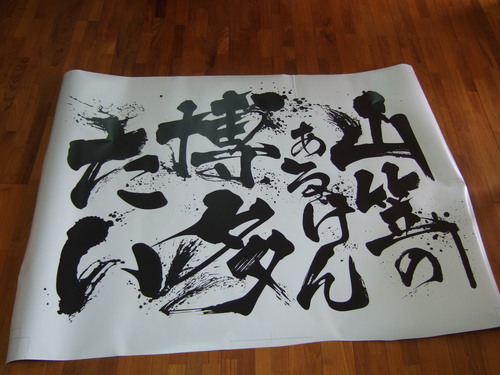 山笠の
あるけん
博多
たい